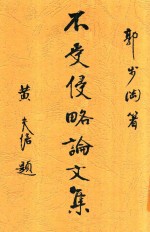 郭步陶著
不受侵略論文集
黃炎培題